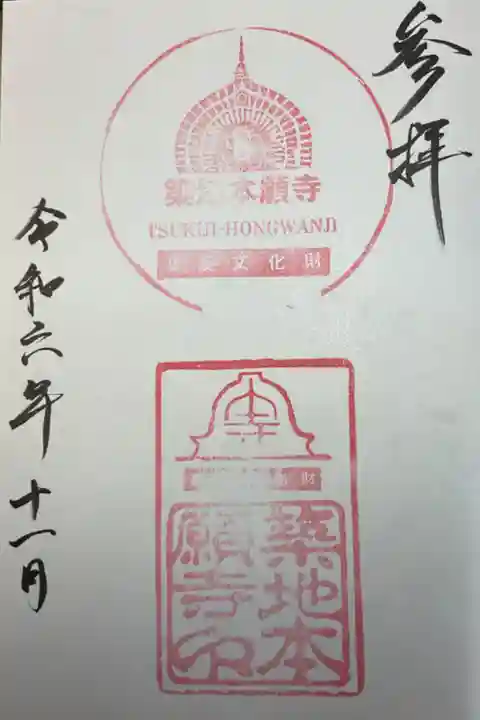 参拝
築地本願寺
TSUKIJI-HONGWANJI
重要文化財
寺
財
築地本
願寺印
令和六年十一月